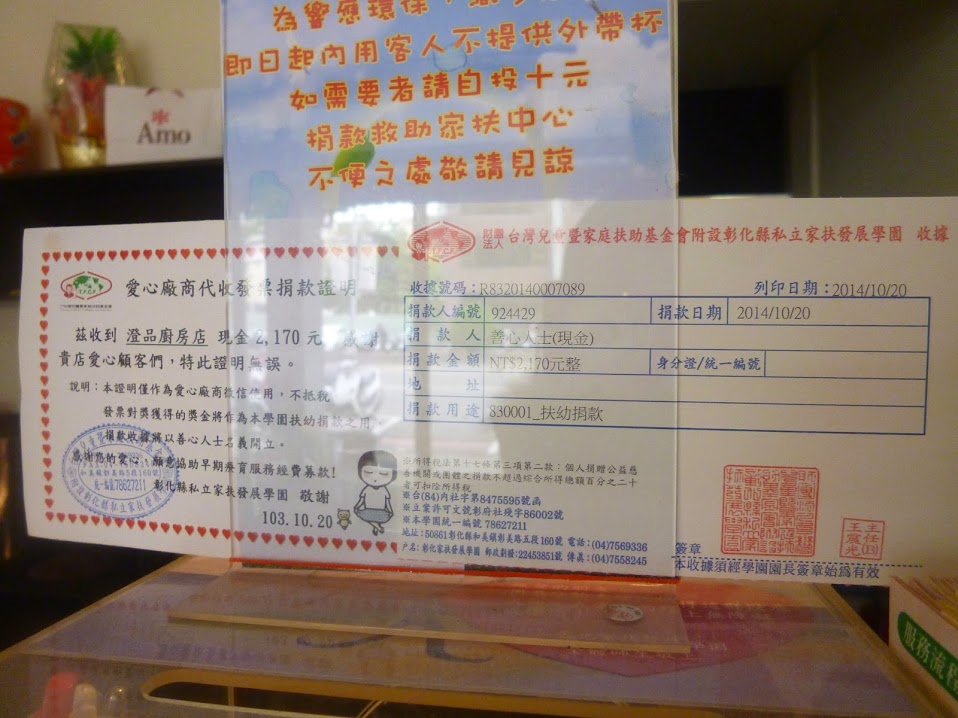 為響應環保，
即日起內用客人不提供外帶杯
如需要者請自投十元
捐款救助家扶中心
不便之處敬請見諒
Amo
愛心廠商代收發票捐款證明
茲收到 澄品廚房店 現金 2,170 元，感謝
貴店愛心顧客們，特此證明無誤。
說明：本證明僅作為愛心廠商徵信使用，不抵稅
發票對獎獲得的獎金將作為本學園扶幼捐款之用。
捐款收據將以善心人士名義開立。
感謝您的愛心，願意協助早期療育服務經費募款!
彰化縣私立家扶發展學園 敬謝
103.10.20
78627211
財團法人 台灣兒童暨家庭扶助基金會附設彰化縣私立家扶發展學園 收據
收據號碼：R8320140007089 列印日期：2014/10/20
捐款人編號 924429 捐款日期 2014/10/20
捐款人 善心人士(現金)
捐款金額 NT$2,170元整 身分證/統一編號
地址
捐款用途 830001_扶幼捐款
※所得稅法第十七條第三項第二款：個人捐贈公益慈
善機關或團體之捐款不超過綜合所得總額百分之二十
者可扣除所得稅
※台(84)內社字第8475595號函
※立案許可文號彰府社殘字86002號
※本學園統一編號 78627211
地址：50861彰化縣和美鎮彰美路五段160號 電話：(04)7569336
戶名：彰化家扶發展學園 郵政劃撥：22453851號 傳真：(04)7558245
簽章
主任
王震光
本收據須經學園園長簽章始為有效
服務流